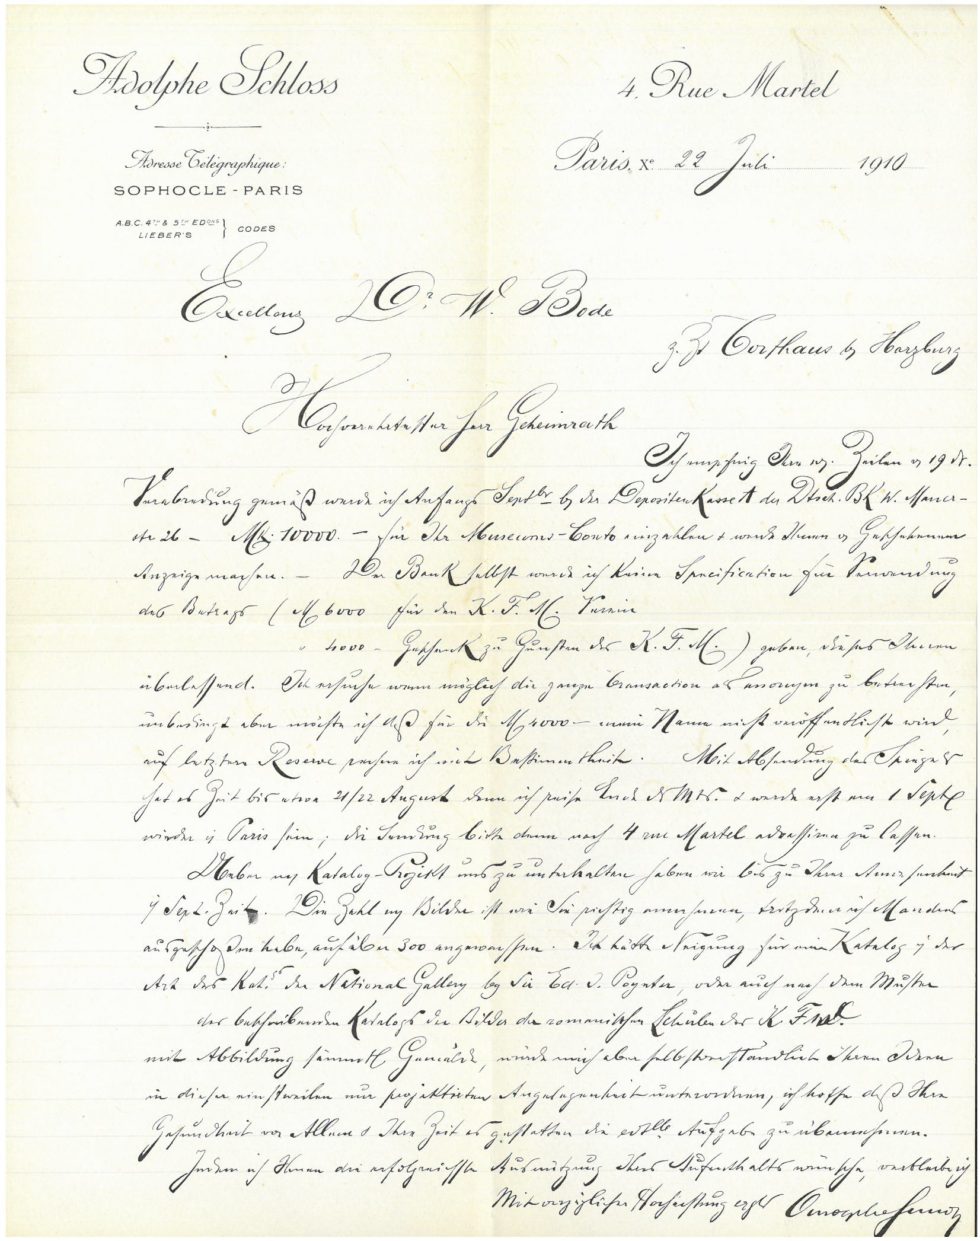 Adolphe Schloss
4. Rue Martel
Adresse Télégraphique:
SOPHOCLE - PARIS
A.B.C. 4TH & 5TH EDONS
LIEBER'S } CODES
Paris, Xe 22 Juli 1910
Excellenz Dr. W. Bode
z. Zt Torfhaus b/ Harzburg
Hochverehrtester Herr Geheimrath
Ich empfing Ihre w. Zeilen v 19 ds.
Verabredung gemäß werde ich Anfangs Septbr b/ der Depositen Kasse A der Dtsch. BK W. Mauer-
str 26 – Mk. 10000. – für Ihr Museums-Conto einzahlen & werde Ihnen v Geschehenem
Anzeige machen. – Der Bank selbst werde ich keine Specification für Verwendung
des Betrags ( M 6000 für den K. F. M. Verein
" 4000 – Geschenk zu Gunsten des K. F. M. ) geben, dieses Ihnen
überlassend. Ich ersuche wenn möglich die ganze Transaction als anonym zu betrachten,
unbedingt aber möchte ich daß für die M 4000 – mein Name nicht veröffentlicht wird,
auf letztere Reserve rechne ich mit Bestimmtheit. Mit Absendung des Spiegels
hat es Zeit bis etwa 21/22 August denn ich reise Ende ds Mts. & werde erst am 1 Sept
wieder i/ Paris sein; die Sendung bitte dann nach 4 rue Martel adressiren zu lassen.
Ueber m/ Katalog-Projekt uns zu unterhalten haben wir bis zu Ihrer Anwesenheit
i/ Sept. Zeit. Die Zahl m/ Bilder ist wie Sie richtig annehmen, trotzdem ich Manches
ausgeschoßen habe, auf über 300 angewachsen. Ich hätte Neigung für einen Katalog i/ der
Art des Kat.s der National Gallery by Sir Ed. J. Poynter, oder auch nach dem Muster
des beschreibenden Katalogs der Bilder der romanischen Schulen des K F M.
mit Abbildung sämmtl Gemälde, würde mich aber selbstverständlich Ihren Ideen
in dieser einstweilen nur projektirten Angelegenheit unterordnen, ich hoffe daß Ihre
Gesundheit vor Allem & Ihre Zeit es gestatten die Aufgabe zu übernehmen.
Indem ich Ihnen die erfolgreichste Ausnützung Ihres Aufenthalts wünsche, verbleibe ich
Mit vorzüglicher Hochachtung